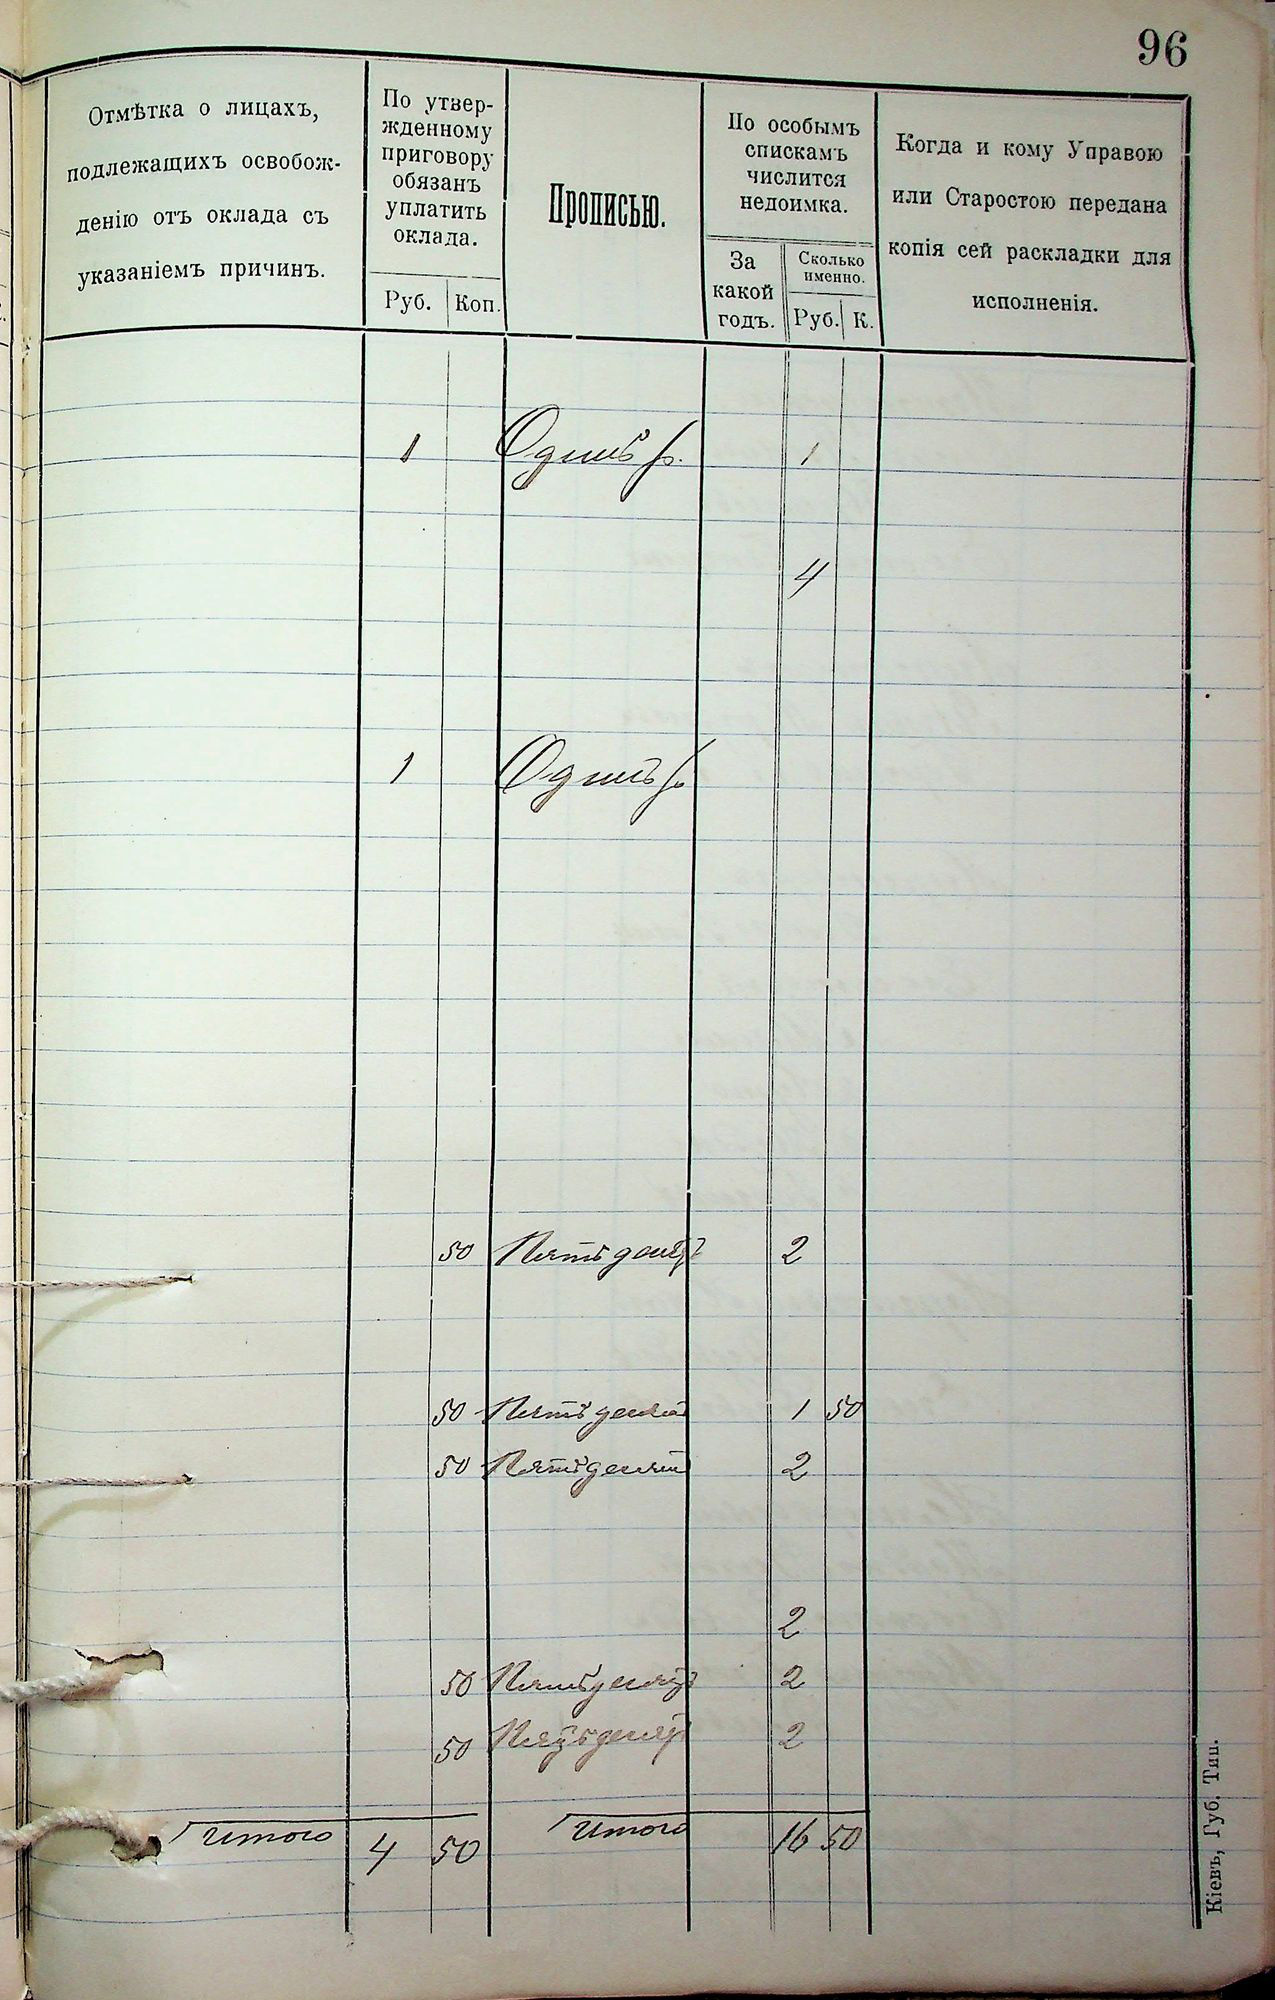 96
Отмѣтка о лицахъ,
подлежащихъ освобож-
денію отъ оклада съ
указаніемъ причинъ.
По утвер-
жденному
приговору
обязанъ
уплатить
оклада.
Руб. Коп.
Прописью.
По особымъ
спискамъ
числится
недоимка.
За
какой
годъ.
Сколько
именно.
Руб. К.
Когда и кому Управою
или Старостою передана
копія сей раскладки для
исполненія.
1 Одинъ р. 1
4
1 Одинъ р
50 Пятьдесятъ 2
50 Пятьдесят 1 50
50 Пятьдесят 2
2
50 Пятьдесятъ 2
50 Пятьдесят 2
Итого 4 50 Итого 16 50
Кіевъ, Губ. Тип.